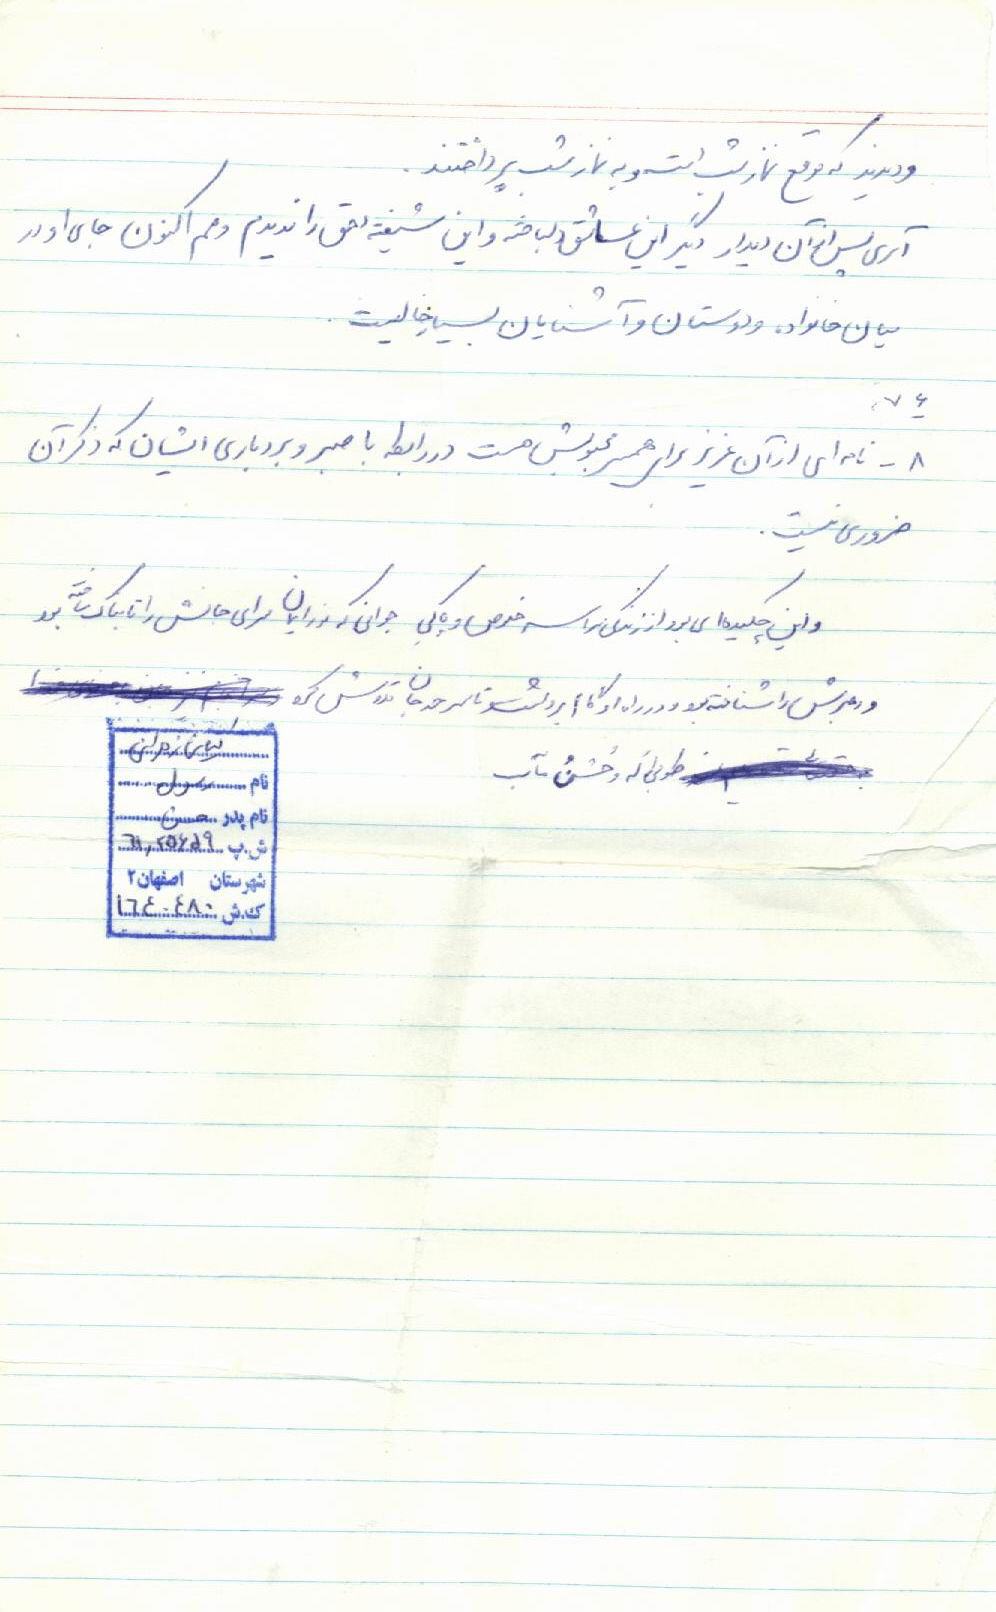 ودیدند که موقع نماز شب است و به نماز شب پرداختند.
آری پس از آن دیدار دیگر این عاشق دلباخته و این شیفته حق را ندیدم و هم اکنون جای او در
میان خانواده و دوستان و آشنایان بسیار خالیست.
۷۶
۸- نامه ای از آن عزیز برای همسر محبوبش هست در رابطه با صبر و بردباری ایشان که ذکر آن
ضروری نیست.
و این چکیده ای بود از زندگی سراسر خلوص و پاکی جوانی که نور ایمان سرای جانش را تابناک ساخته بود
و رهبرش را شناخته بود و در راه او گام برداشت و تا سر حد جان تلاش کرد
طوبی له و حسن مآب
نام رسول
نام پدر حسن
ش.پ
شهرستان اصفهان ۲
ک.ش ۱۶۴۰۴۸۰